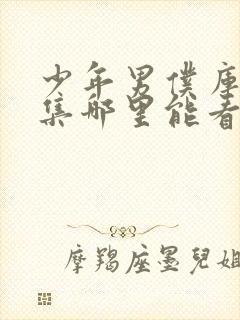 少年男僕庫
集哪里能看
摩羯座墨兒姐